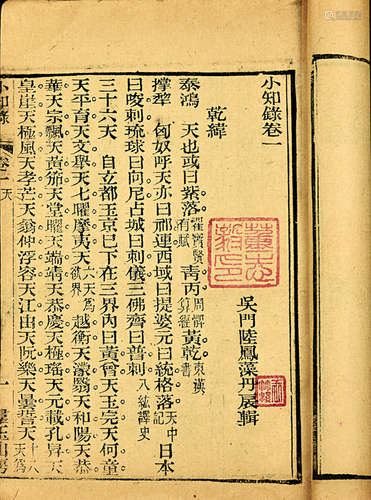 小知錄卷一
吳門陸鳳藻丹扆輯
乾緯
泰鴻 天也或曰紫落 有賦 青丙 周髀算經 黃乾 東漢書
撐犁 匈奴呼天亦曰祁連西域曰提婆元曰統格落 天中記 日本
曰唆剌琉球曰尼占城曰剌儀三佛齊曰普剌 八紘譯史
三十六天 自玄都玉京已下在三界內曰黃曾天玉完天何童
天平育天文舉天七曜摩夷天 六天爲欲界 越衡天濛翳天和陽天恭
華天宗飄天黃笳天堂曜天端靖天恭慶天極瑤天元載孔昇天
皇崖天極風天孝芒天翁仲浮容天江由天阮樂天曇誓天 十八
小知錄 卷一 天 一